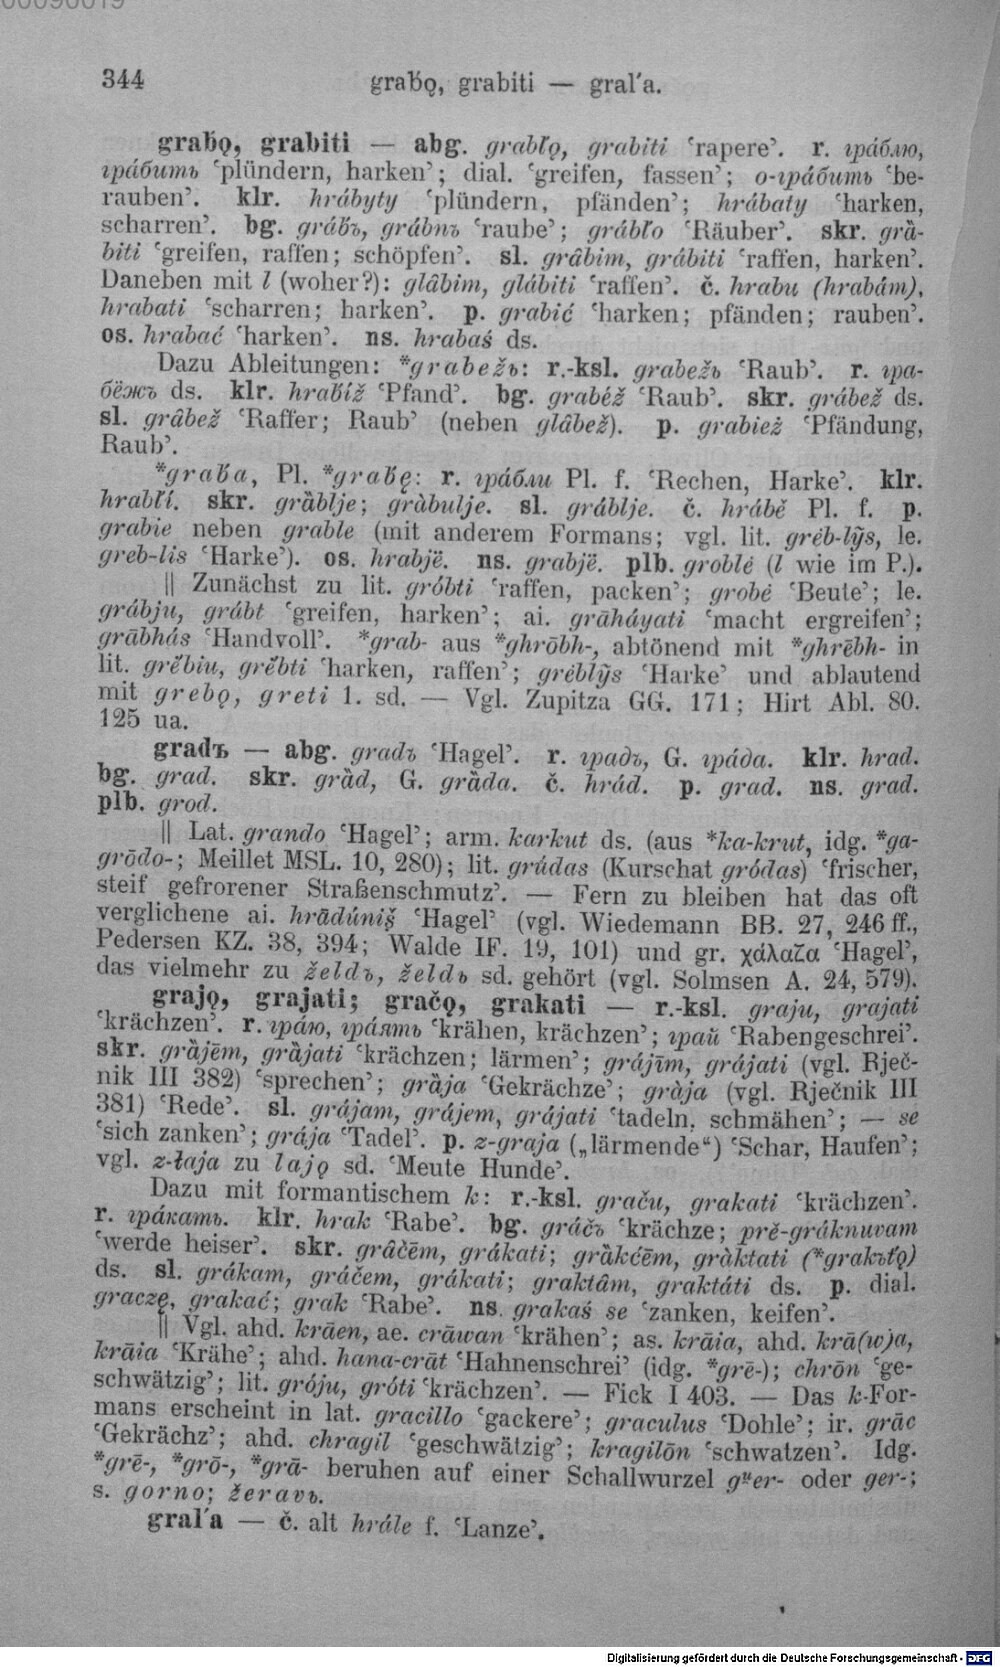 344 grab́ǫ, grabiti — gral´a.
grab́ǫ, grabiti — abg. grabľǫ, grabiti ‘rapere’. r. гра́блю,
гра́бить ‘plündern, harken’; dial. ‘greifen, fassen’; о-гра́бить ‘be-
rauben’. klr. hrábyty ‘plündern, pfänden’; hrábaty ‘harken,
scharren’. bg. gráb́ъ, grábnъ ‘raube’; grábľo ‘Räuber’. skr. grȁ-
biti ‘greifen, raffen; schöpfen’. sl. grâbim, grábiti ‘raffen, harken’.
Daneben mit l (woher?): glâbim, glábiti ‘raffen’. č. hrabu (hrabám),
hrabati ‘scharren; harken’. p. grabić ‘harken; pfänden; rauben’.
os. hrabać ‘harken’. ns. hrabaś ds.
Dazu Ableitungen: *grabežь: r.-ksl. grabežь ‘Raub’. r. гра-
бёжъ ds. klr. hrab́íž ‘Pfand’. bg. grabéž ‘Raub’. skr. grábež ds.
sl. grâbež ‘Raffer; Raub’ (neben glâbež). p. grabież ‘Pfändung,
Raub’.
*grab́a, Pl. *grab́ę: r. гра́бли Pl. f. ‘Rechen, Harke’. klr.
hrabľí. skr. grȁblje; grȁbulje. sl. gráblje. č. hrábě Pl. f. p.
grabie neben grable (mit anderem Formans; vgl. lit. grėb-lỹs, le.
greb-lis ‘Harke’). os. hrabjë. ns. grabjë. plb. groblė (l wie im P.).
|| Zunächst zu lit. gróbti ‘raffen, packen’; grobė ‘Beute’; le.
grábju, grábt ‘greifen, harken’; ai. grāháyati ‘macht ergreifen’;
grābhás ‘Handvoll’. *grab- aus *ghrōbh-, abtönend mit *ghrēbh- in
lit. grė́biu, grė́bti ‘harken, raffen’; grėblỹs ‘Harke’ und ablautend
mit grebǫ, greti 1. sd. — Vgl. Zupitza GG. 171; Hirt Abl. 80.
125 ua.
gradъ — abg. gradъ ‘Hagel’. r. градъ, G. гра́да. klr. hrad.
bg. grad. skr. grȁd, G. grȁda. č. hrád. p. grad. ns. grad.
plb. grod.
|| Lat. grando ‘Hagel’; arm. karkut ds. (aus *ka-krut, idg. *ga-
grōdo-; Meillet MSL. 10, 280); lit. grúdas (Kurschat gródas) ‘frischer,
steif gefrorener Straßenschmutz’. — Fern zu bleiben hat das oft
verglichene ai. hrādúniṣ ‘Hagel’ (vgl. Wiedemann BB. 27, 246 ff.,
Pedersen KZ. 38, 394; Walde IF. 19, 101) und gr. χάλαζα ‘Hagel’,
das vielmehr zu želdъ, želdь sd. gehört (vgl. Solmsen A. 24, 579).
grajǫ, grajati; gračǫ, grakati — r.-ksl. graju, grajati
‘krächzen’. r. гра́ю, гра́ять ‘krähen, krächzen’; грай ‘Rabengeschrei’.
skr. grȁjēm, grȁjati ‘krächzen; lärmen’; grájīm, grájati (vgl. Rječ-
nik III 382) ‘sprechen’; grȁja ‘Gekrächze’; gràja (vgl. Rječnik III
381) ‘Rede’. sl. grájam, grájem, grájati ‘tadeln, schmähen’; — se
‘sich zanken’; grája ‘Tadel’. p. z-graja („lärmende“) ‘Schar, Haufen’;
vgl. z-łaja zu lajǫ sd. ‘Meute Hunde’.
Dazu mit formantischem k: r.-ksl. graču, grakati ‘krächzen’.
r. гра́кать. klr. hrak ‘Rabe’. bg. gráčъ ‘krächze; prě-gráknuvam
‘werde heiser’. skr. grâčēm, grákati; grȁkćēm, gràktati (*grakъt́ǫ)
ds. sl. grákam, gráčem, grákati; graktâm, graktáti ds. p. dial.
graczę, grakać; grak ‘Rabe’. ns. grakaś se ‘zanken, keifen’.
|| Vgl. ahd. krāen, ae. crāwan ‘krähen’; as. krāia, ahd. krā(w)a,
krāia ‘Krähe’; ahd. hana-crāt ‘Hahnenschrei’ (idg. *grē-); chrōn ‘ge-
schwätzig’; lit. gróju, gróti ‘krächzen’. — Fick I 403. — Das k-For-
mans erscheint in lat. gracillo ‘gackere’; graculus ‘Dohle’; ir. grāc
‘Gekrächz’; ahd. chragil ‘geschwätzig’; kragilōn ‘schwatzen’. Idg.
*grē-, *grō-, *grā- beruhen auf einer Schallwurzel gᵘer- oder ger-;
s. gorno; žeravь.
gral´a — č. alt hrále f. ‘Lanze’.
Digitalisierung gefördert durch die Deutsche Forschungsgemeinschaft - DFG